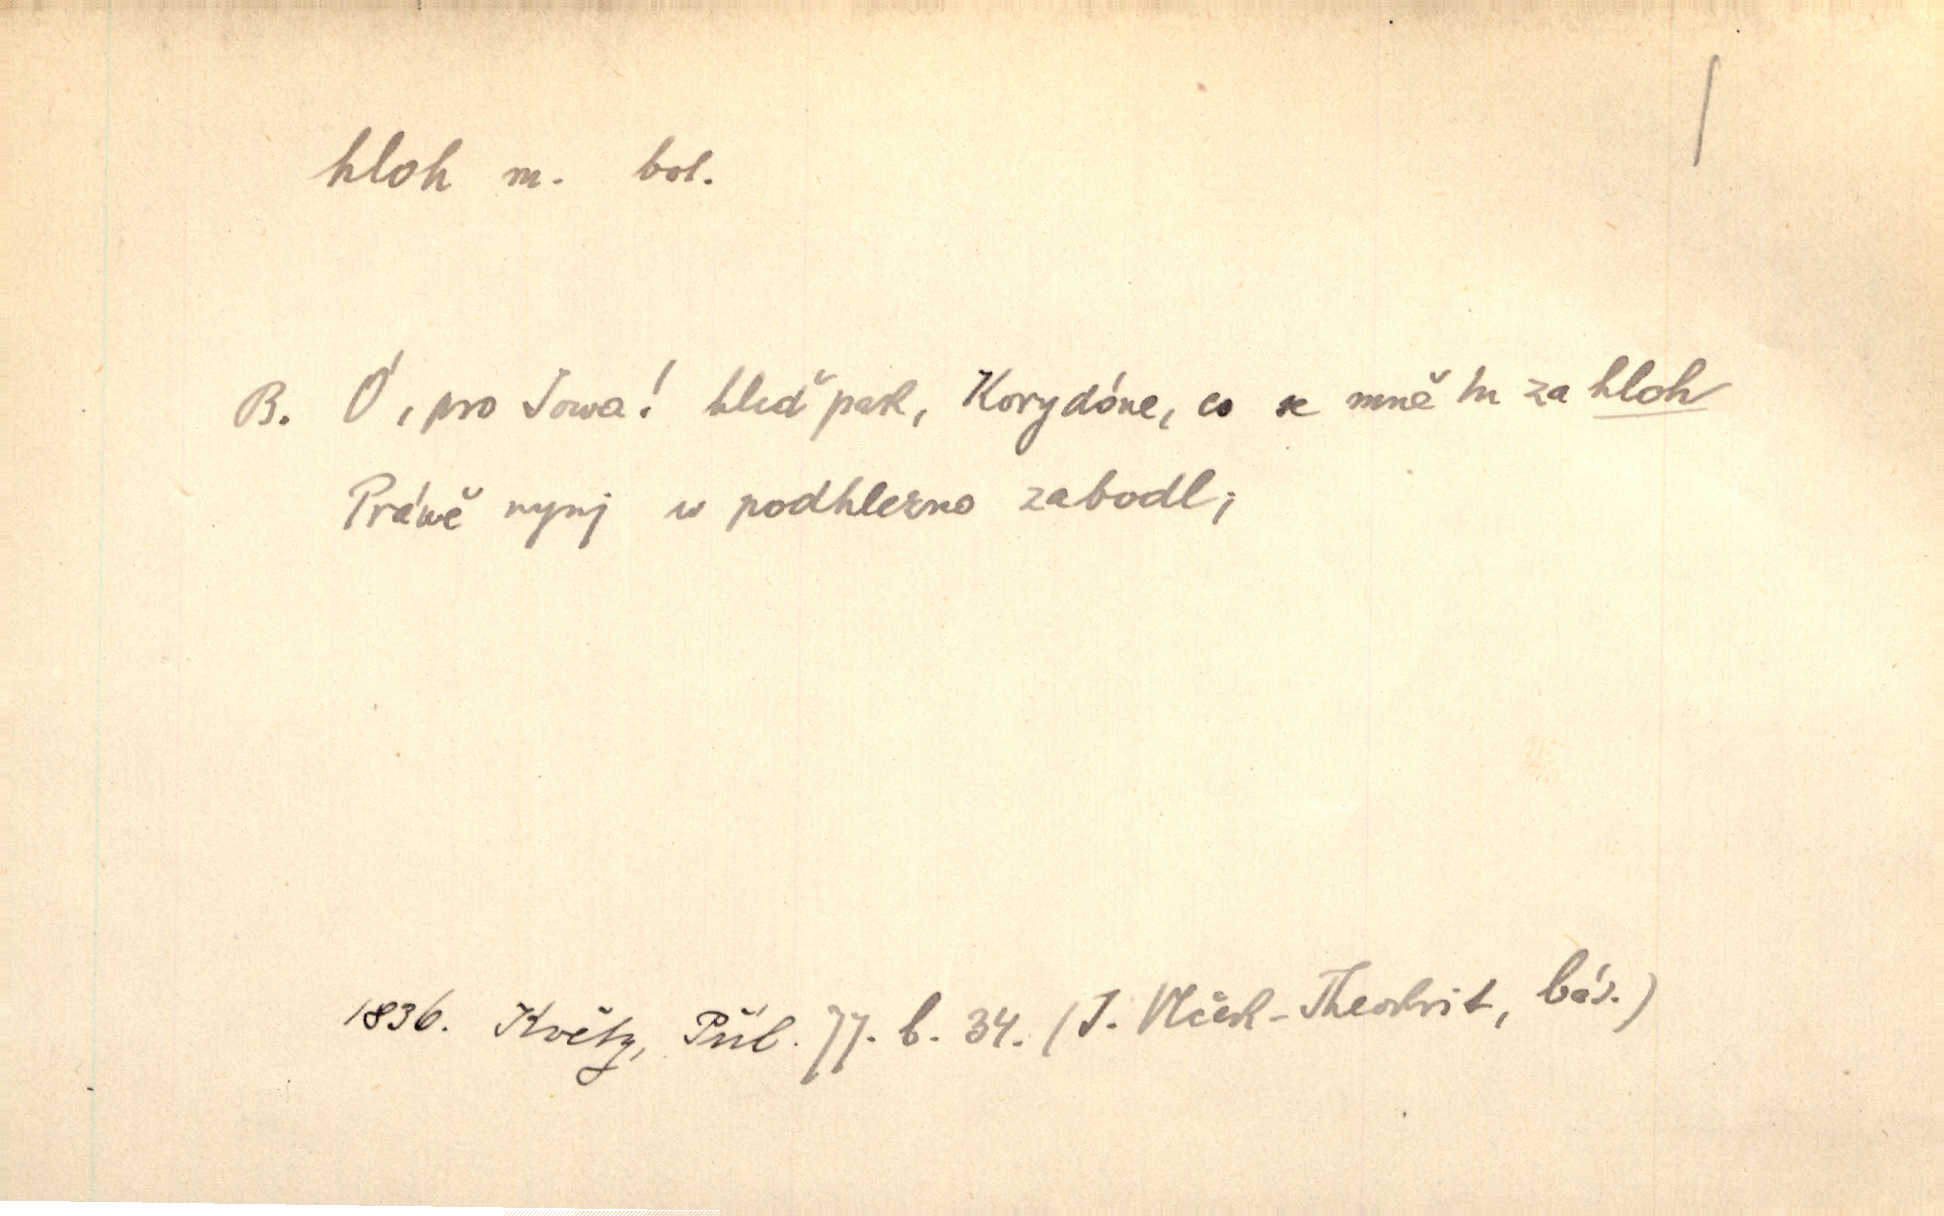 hloh m. bot.
B. Ó, pro Jowa! hleď pak, Korydóne, co se mně tu za hloh
Práwě nynj w podhlezno zabodl;
1836. Květy, Příl. 17. b. 34. (J. Vlček-Theokrit, bás.)